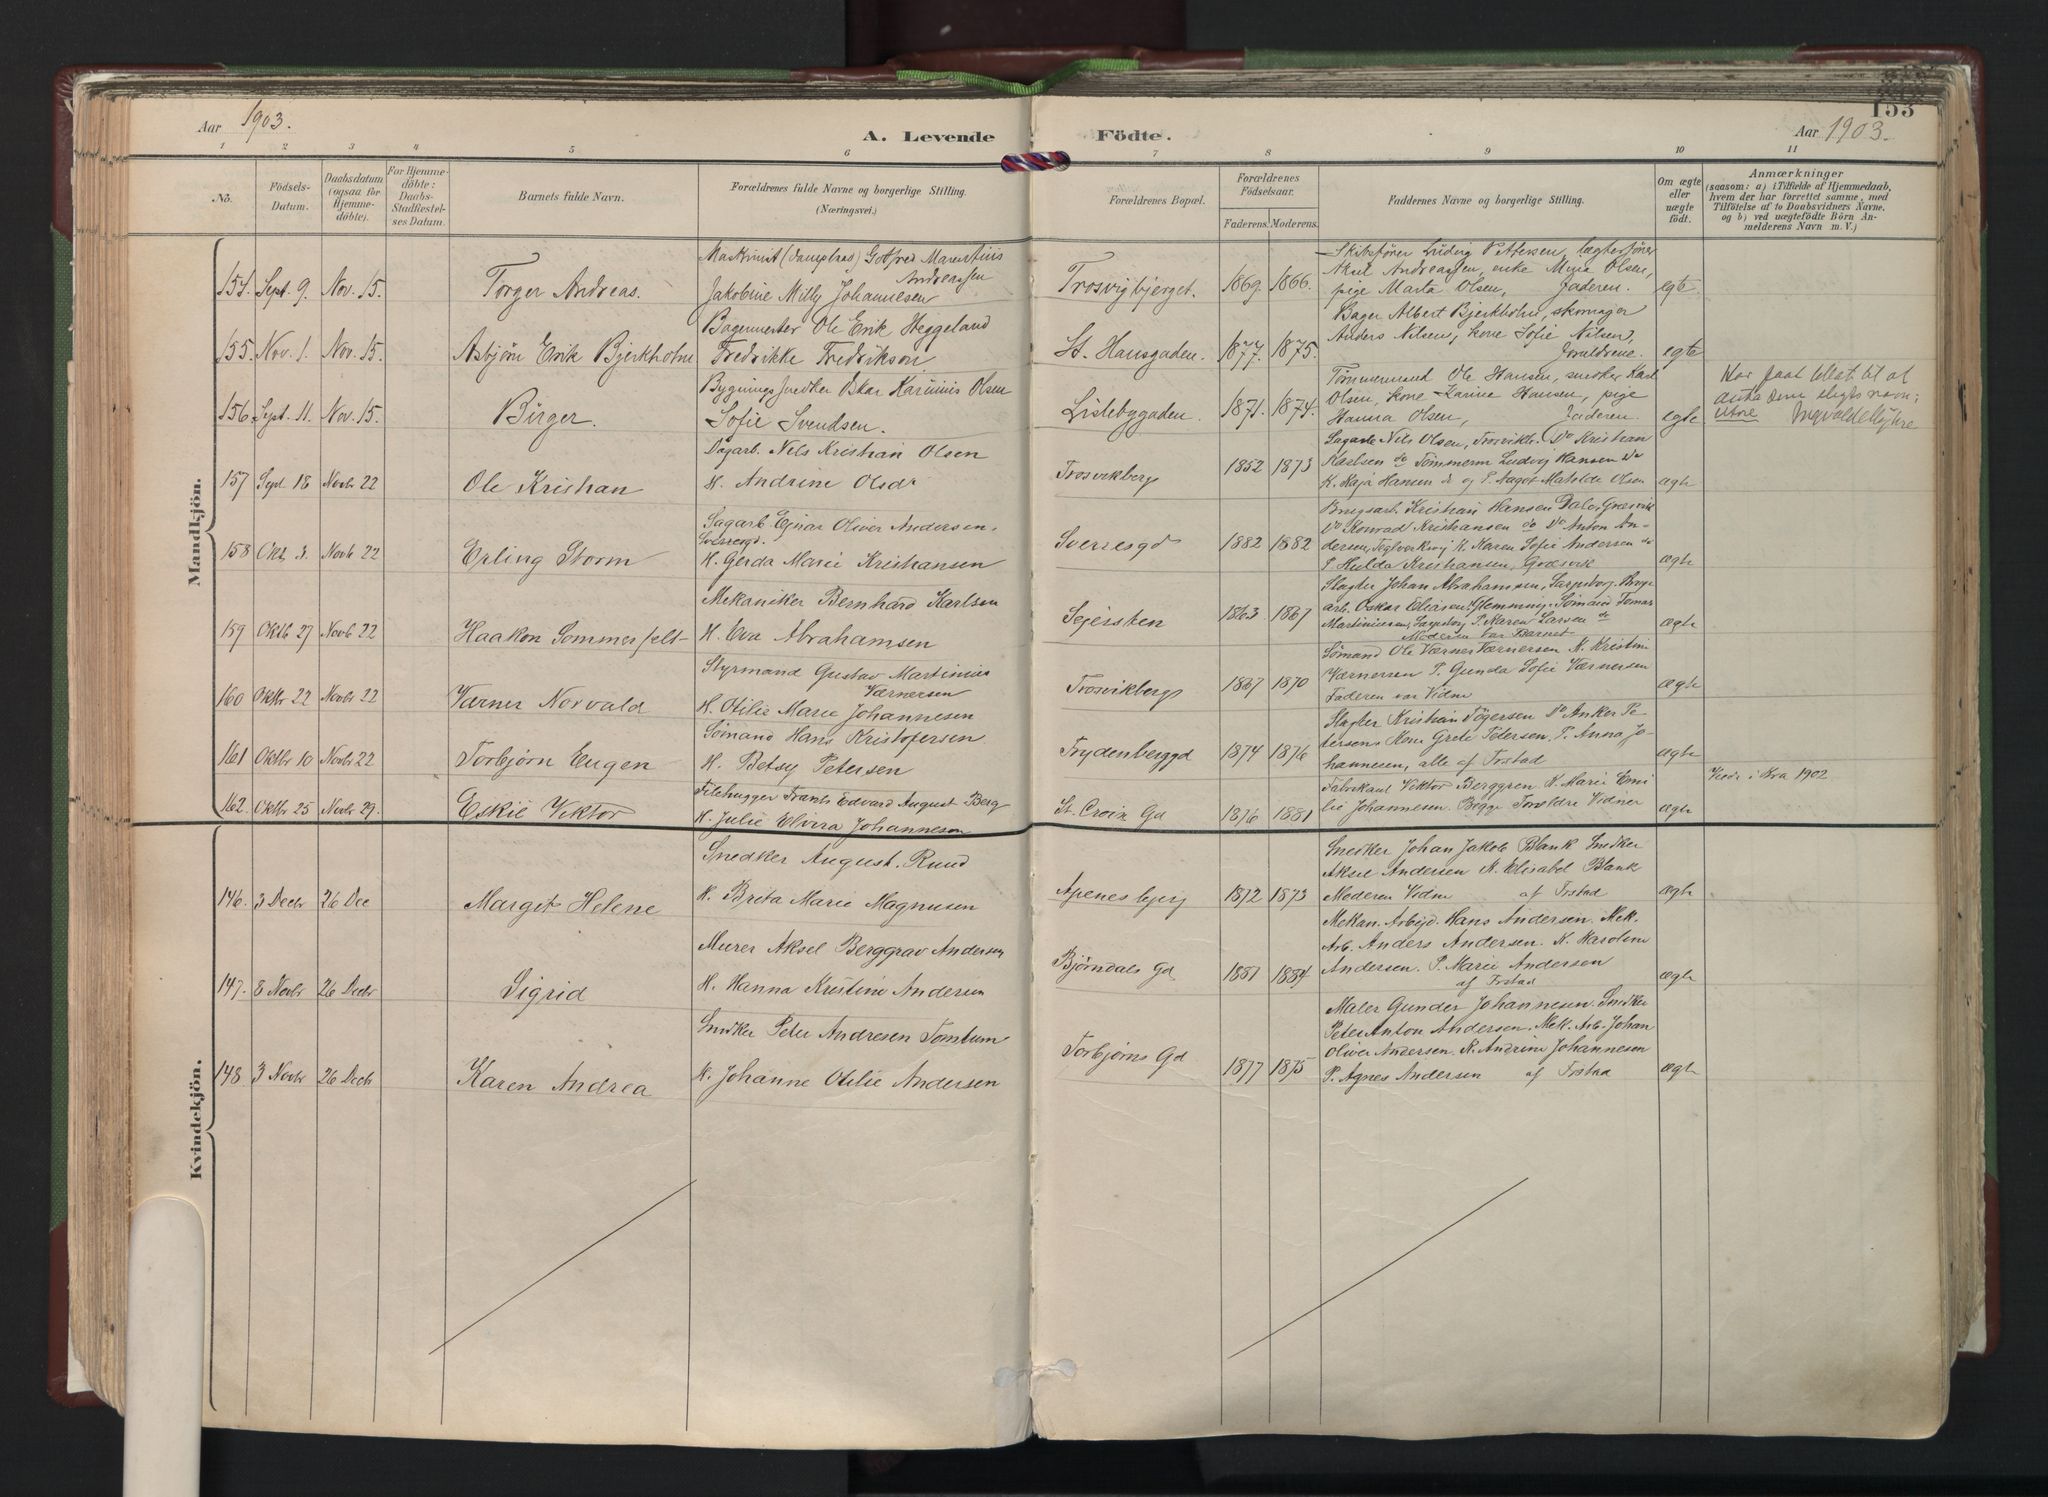 153
Aar 1903.
A. Levende Födte.
Aar 1903.
1 2 3 4 5 6 7 8 9 10 11
No.
Födsels-
Datum.
Daabsdatum
(ogsaa for
Hjemme-
döbte).
For Hjemme-
döbte:
Daabs-
Stadfæstel-
ses Datum.
Barnets fulde Navn.
Forældrenes fulde Navne og borgerlige Stilling.
(Næringsvei.)
Forældrenes Bopæl.
Forældrenes
Födselsaar.
Faderens. Moderens.
Faddernes Navne og borgerlige Stilling.
Om ægte
eller
uægte
födt.
Anmærkninger
(saasom: a) i Tilfælde af Hjemmedaab,
hvem der har forrettet samme, med
Tilföielse af to Daabsvidners Navne,
og b) ved uægtefödte Börn An-
melderens Navn m. V.)
Mandkjön.
154. Sept. 9. Nov. 15. Torger Andreas.
Maskinist (Dampbaad) Gotfred Marentius
Andreassen
Jakobine Milly Johannesen
Trosvigbjerget. 1869. 1866.
Skibsfører Ludvig Pettersen, lægterfører
Aksel Andreassen, enke Mina Olsen,
pige Marta Olsen, Faderen. egte
155. Nov. 1. Nov. 15. Asbjørn Erik Bjerkholm
Bagermester Ole Erik Heggeland
Fredrikke Fredrikson
St. Hansgaden. 1877. 1875.
Bager Albert Bjerkholm, skomager
Anders Nilsen, kone Sofie Nilsen,
Forældrene. egte
156. Sept. 11. Nov. 15. Birger.
Bygningssnedker Oskar Karinius Olsen
Sofie Svendsen.
Lislebygaden. 1871. 1874.
Tømmermand Ole Hansen, snedker Karl
Olsen, kone Karine Hansen, pige
Hanna Olsen, Faderen. egte
Har faat tillat. til at
anta som slegtsnavn:
Utne
157 Sept 18 Novbr 22 Ole Kristian
Dagarb. Nils Kristian Olsen
H. Andrine Olsdr
Trosvikberg 1852 1873
Sagarb Nils Olsen, Trosvikb. Do Kristian
Karlsen do Tømmerm Ludvig Hansen do
K. Kaja Hansen do og P. Aagot Matilde Olsen ægte
158 Okt 3. Novb 22 Erling Storm
Sagarb. Ejnar Oliver Andersen.
Sverresgd.
H. Gerda Marie Kristiansen
Sverresgd 1882 1882
Brugsarb. Kristian Hansen Dale, Græsvik
Do Konrad Kristiansen do Do Anton An-
dersen, Teglverksvj K. Karen Sofie Andersen do
P. Hulda Kristiansen, Græsvik ægte
159 Oktb 27 Novb 22 Haakon Sommerfelt
Mekaniker Bernhard Karlsen
H. Eva Abrahamsen
Sejersten 1863 1867
Slagter Johan Abrahamsen, Sarpsborg. Brugs
arb. Oskar Eliasen, Glemming. Sømand Tomas
Martiniusen, Sarpsborg P. Karen Larsen do
Moderen bar Barnet ægte
160 Oktbr 22 Novbr 22 Værner Norvald
Styrmand Gustav Martinius
Værnersen
H. Otilie Marie Johannesen
Trosvikberg 1867 1870
Sømand Ole Værner Værnersen K. Kristine
Værnersen P. Gunda Sofie Værnersen
Faderen var Vidne ægte
161 Oktbr 10 Novbr 22 Torbjørn Eugen
Sømand Hans Kristofersen
H. Betsy Petersen
Frydenberggd 1874 1876
Slagter Kristian Tögersen Do Anker Pe-
tersen Kone Grete Pedersen. P. Anna Jo-
hannesen, alle af Frstad ægte
162. Oktbr 25 Novbr 29. Eskil Viktor
Filehugger Frants Edvard August Berg
H. Julie Elvira Johanneson
St. Croix Gd 1876 1881
Fabrikant Viktor Berggren. K. Marie Emi
lie Johannesen. Begge Foreldre Vidner ægte
Viede i Kra 1902
Kvindekjön.
146. 3 Decbr 26 Dec Margit Helene
Snedker August. Ruud
K. Brita Marie Magnusen
Apenesbjerg 1872 1873
Snedker Johan Jakob Blank Snedker
Aksel Andersen K. Elisabet Blank
Moderen Vidne af Frstad ægte
147. 8 Novbr 26 Decbr Sigrid
Murer Aksel Berggrav Andersen
H. Hanna Kristine Andersen
Bjørndals Gd 1881 1884
Mekan. Arbejd. Hans Andersen. Mek.
Arb. Anders Andersen. K. Karoline
Andersen. P. Marie Andersen
af Frstad ægte
148. 3 Novbr 26 Decbr Karen Andrea
Snedker Peter Andresen Tomtum
K. Johanne Otilie Andersen
Torbjørns Gd 1877 1875
Maler Gunder Johannesen. Snedker
Peter Anton Andersen. Mek. Arb. Johan
Oliver Andersen. K. Andrine Johannesen
P. Agnes Andersen af Frstad ægte